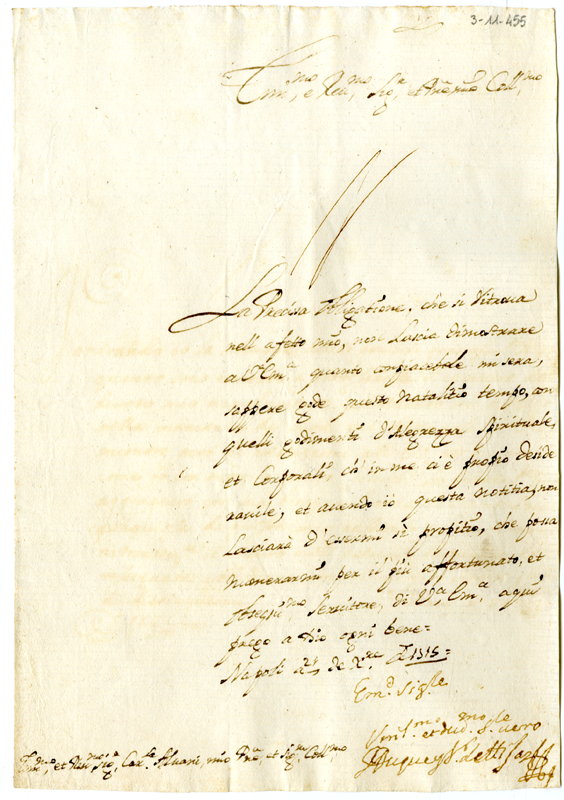 3-11-455
Em.mo, e Reu.mo Sig.r, et Pne mio Coll.mo
La Precisa Obligatione, che si ritroua
nell'afetto mio, non Lascia dimostrare
a V. Em.a quanto conpiaceuole mi sera,
sappere gode questo natalitio tempo, con
quelli godimenti d'Alegrezza spirituale,
et Corporali, ch'in me ci è propio deside
rauile, et auendo io questa notitia, non
Lasciarà d'esermi sì propitio, che possa
nonerarmi per il più affortunato, et
obsequi.mo Seruitore, di V.a Em.a a qui
prego a Dio ogni bene=
Napoli 25 de X.re
Em.o Sig.re
et
uero
Em.mo, et Reu.mo Sig.r Car.le Aluani, mio Pne, et Sig.r Coll.mo